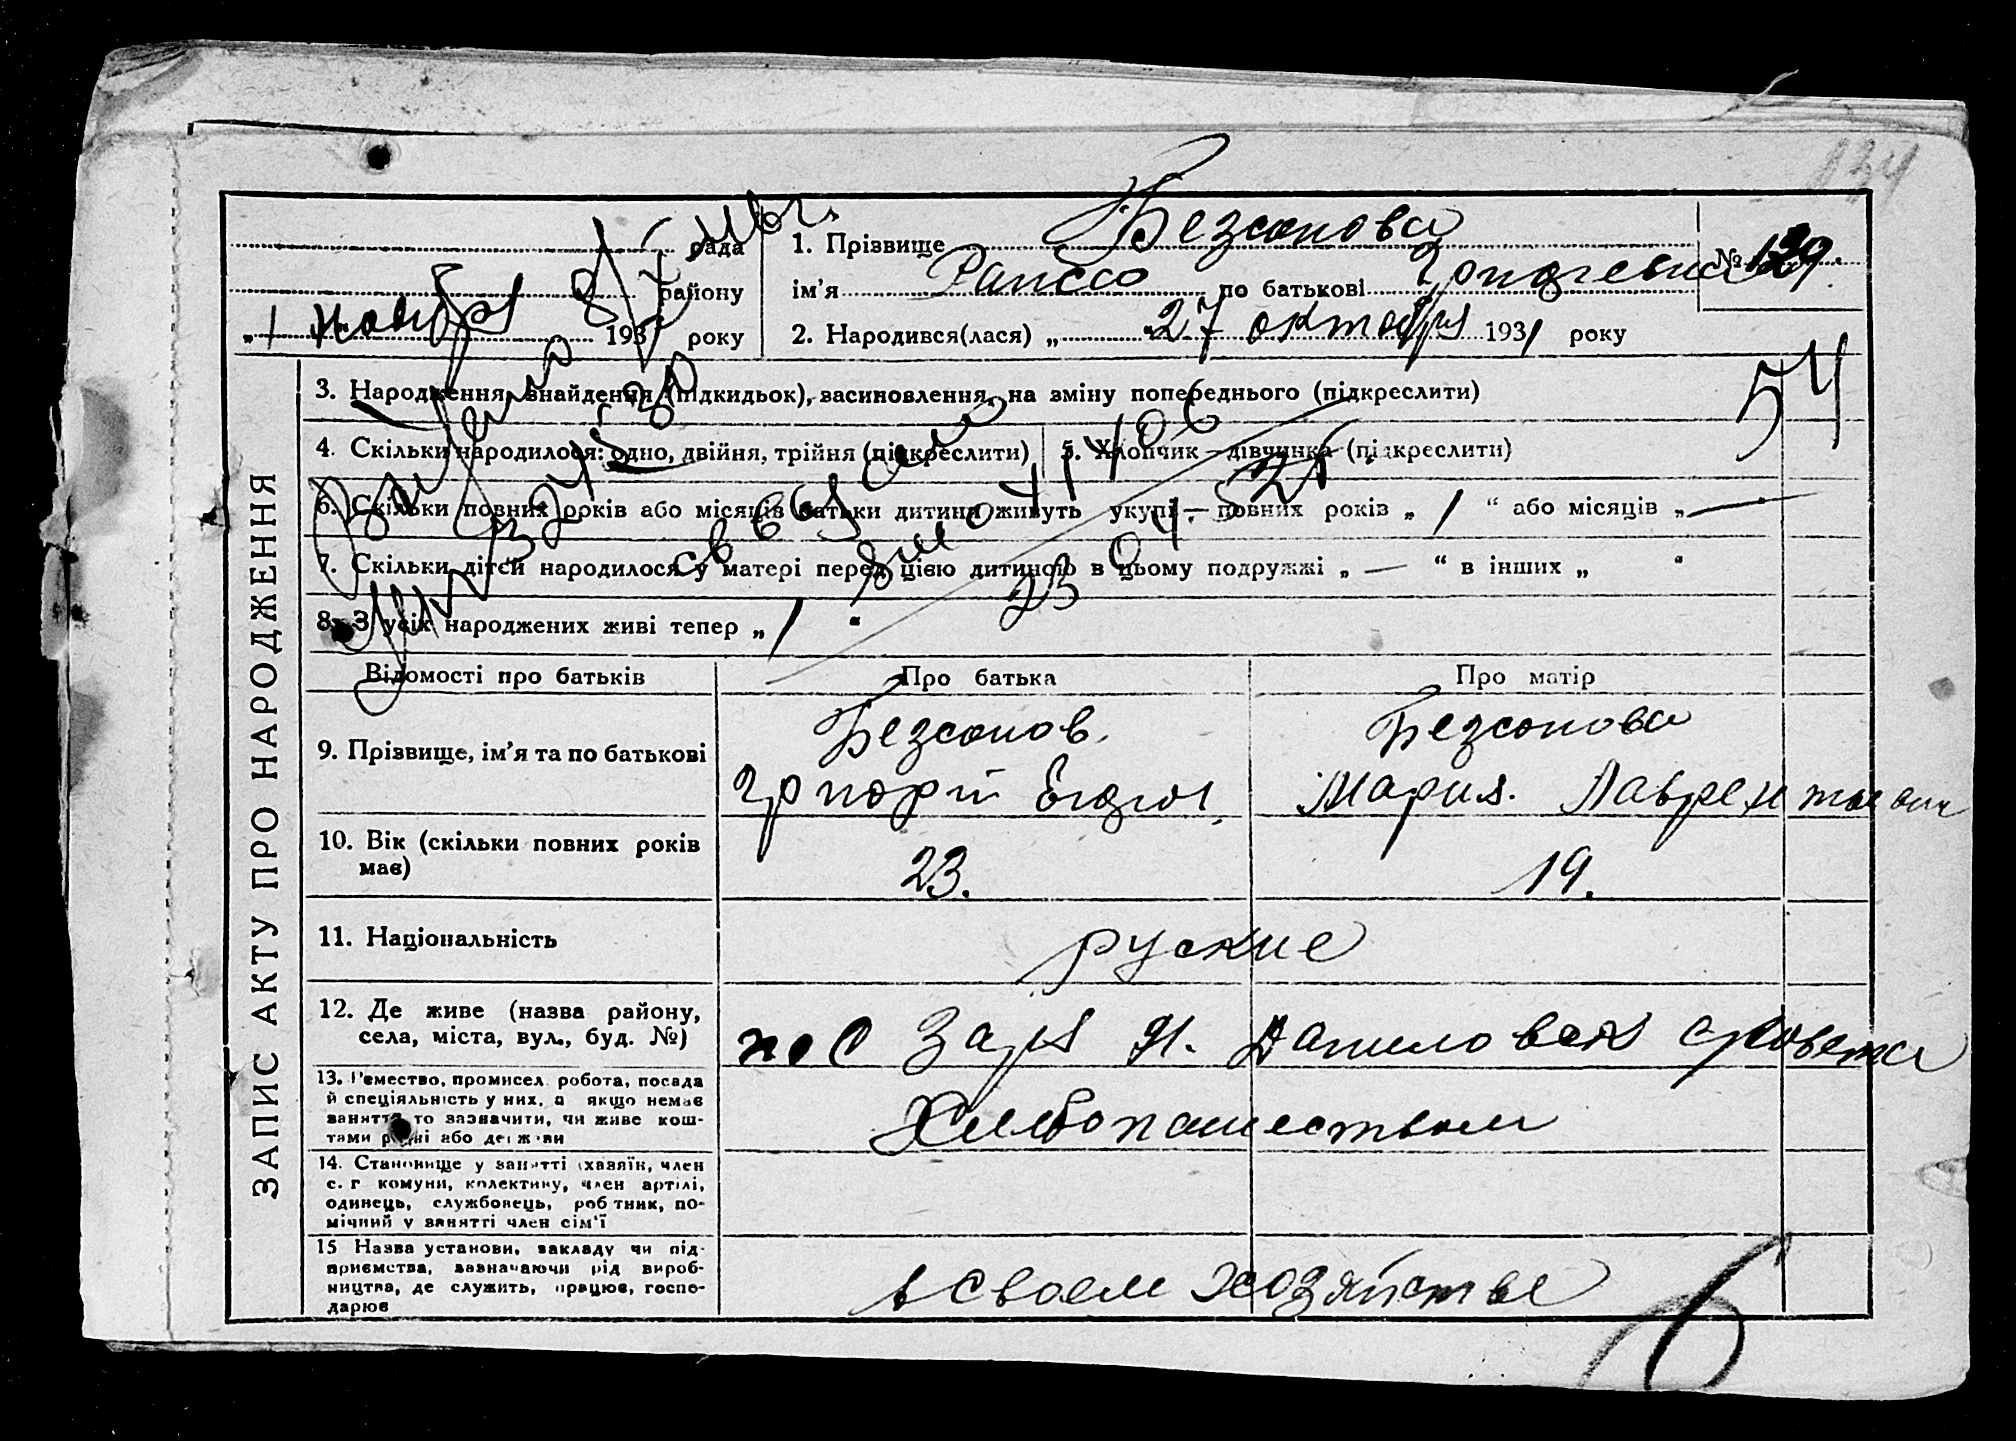 134
рада
району
„ 1 ноября 1931 року
1. Прізвище Безсонова
ім'я Раисса по батькові
№ 139.
2. Народився(лася) „ 27 октября 1931 року
54
3. Народження, знайдення (підкидьок), засиновлення, на зміну попереднього (підкреслити)
4. Скільки народилося: одно, двійня, трійня (підкреслити)
5. Хлопчик – дівчинка (підкреслити)
6. Скільки повних років або місяців батьки дитини живуть укупі — повних років „ 1 “ або місяців „ — “
7. Скільки дітей народилося у матері перед цією дитиною в цьому подружжі „ — “ в інших „ “
8. З усіх народжених живі тепер „ 1 “
ЗАПИС АКТУ ПРО НАРОДЖЕННЯ
Відомості про батьків
Про батька
Про матір
9. Прізвище, ім'я та по батькові
Безсонов.
Безсонова
Мария.
10. Вік (скільки повних років
має)
23.
19.
11. Національність
руские
12. Де живе (назва району,
села, міста, вул., буд. №)
пос Заря Н. Даниловск с/совета
13. Ремество, промисел, робота, посада
й спеціяльність у них, а якщо немає
заняття то зазначити, чи живе кош-
тами рідні або держави
Хлебопашеством
14. Становище у занятті (хазяїн, член
с.г комуни, колективу, член артілі,
одинець, службовець, робітник, по-
мічний у занятті член сім'ї
15 Назва установи, закладу чи під-
приємства, зазначаючи рід вироб-
ництва, де служить, працює, госпо-
дарює
в своем хозяйстве